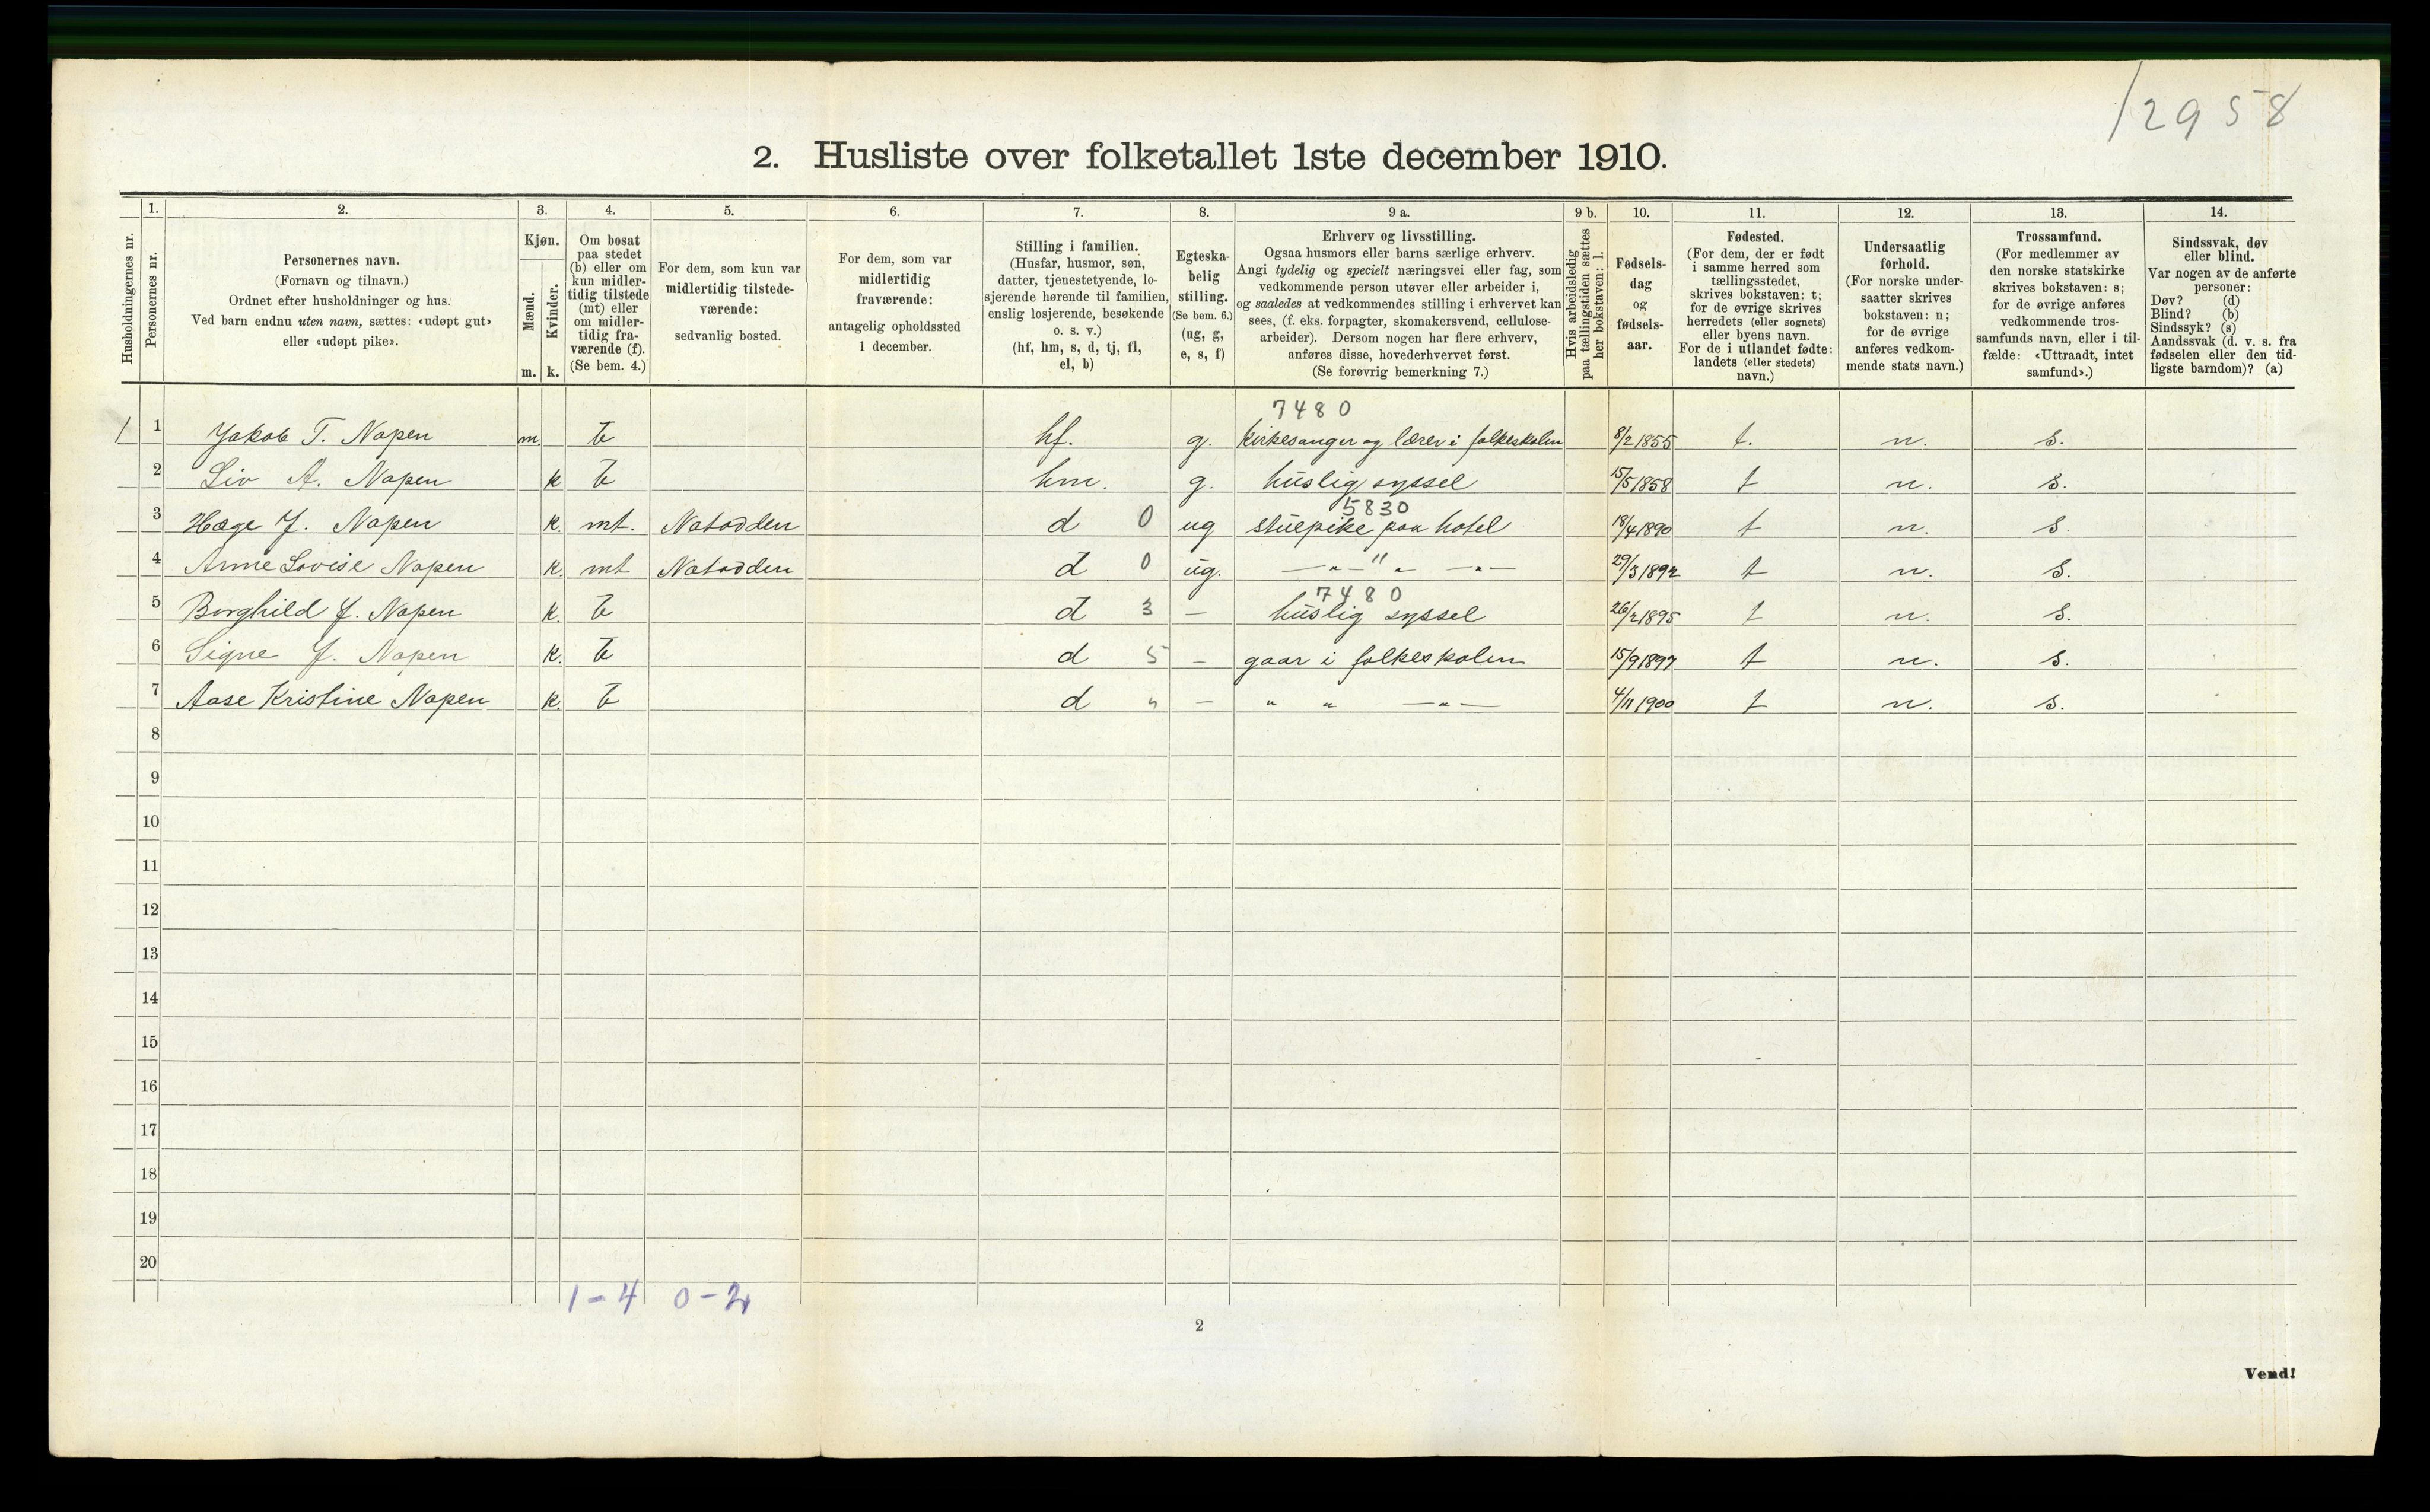 12958
2. Husliste over folketallet 1ste december 1910.
1. 2. 3. 4. 5. 6. 7. 8. 9 a. 9 b. 10. 11. 12. 13. 14.
Husholdningernes nr.
Personernes nr.
Personernes navn.
(Fornavn og tilnavn.)
Ordnet efter husholdninger og hus.
Ved barn endnu uten navn, sættes: «udøpt gut»
eller «udøpt pike».
Kjøn.
Mænd.
Kvinder.
m. k.
Om bosat
paa stedet
(b) eller om
kun midler-
tidig tilstede
(mt) eller
om midler-
tidig fra-
værende (f).
(Se bem. 4.)
For dem, som kun var
midlertidig tilstede-
værende:
sedvanlig bosted.
For dem, som var
midlertidig
fraværende:
antagelig opholdssted
1 december.
Stilling i familien.
(Husfar, husmor, søn,
datter, tjenestetyende, lo-
sjerende hørende til familien,
enslig losjerende, besøkende
o. s. v.)
(hf, hm, s, d, tj, fl,
el, b)
Egteska-
belig
stilling.
(Se bem. 6.)
(ug, g,
e, s, f)
Erhverv og livsstilling.
Ogsaa husmors eller barns særlige erhverv.
Angi tydelig og specielt næringsvei eller fag, som
vedkommende person utøver eller arbeider i,
og saaledes at vedkommendes stilling i erhvervet kan
sees, (f. eks. forpagter, skomakersvend, cellulose-
arbeider). Dersom nogen har flere erhverv,
anføres disse, hovederhvervet først.
(Se forøvrig bemerkning 7.)
Hvis arbeidsledig
paa tællingstiden sættes
her bokstaven: l.
Fødsels-
dag
og
fødsels-
aar.
Fødested.
(For dem, der er født
i samme herred som
tællingsstedet,
skrives bokstaven: t;
for de øvrige skrives
herredets (eller sognets)
eller byens navn.
For de i utlandet fødte:
landets (eller stedets)
navn.)
Undersaatlig
forhold.
(For norske under-
saatter skrives
bokstaven: n;
for de øvrige
anføres vedkom-
mende stats navn.)
Trossamfund.
(For medlemmer av
den norske statskirke
skrives bokstaven: s;
for de øvrige anføres
vedkommende tros-
samfunds navn, eller i til-
fælde: «Uttraadt, intet
samfund».)
Sindssvak, døv
eller blind.
Var nogen av de anførte
personer:
Døv? (d)
Blind? (b)
Sindssyk? (s)
Aandssvak (d. v. s. fra
fødselen eller den tid-
ligste barndom)? (a)
7480
1 1 Jakob T. Napen m. b hf. g. kirkesanger og lærer i folkeskolen 8/2 1855 t. n. s.
2 Liv A. Napen k b hm. g. huslig syssel 15/5 1858 t n. s.
5830
3 Hæge J. Napen k. mt. Notodden d 0 ug stuepike paa hotel 18/4 1890 t n. s.
4 Anne Lovise Napen k. mt Notodden d 0 ug. — " — " " — " — 29/3 1892 t n. s.
7480
5 Borghild J. Napen k. b d 3 — huslig syssel 26/2 1895 t n. s.
6 Signe J. Napen k. b d 5 — gaar i folkeskolen 15/9 1897 t n. s.
7 Aase Kristine Napen k. b d " — " " — " — 4/11 1900 t n. s.
8
9
10
11
12
13
14
15
16
17
18
19
20
1-4 0-2
2
Vend!